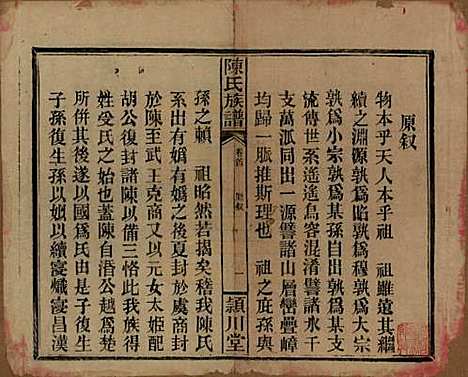 原叙
物本乎天人本乎祖　祖雖遠其繼
續之淵源孰爲昭孰爲穆孰爲大宗
孰爲小宗孰爲某孫自出孰爲某支
流傳世系遙遙烏容混淆譬諸水千
支萬派同出一源譬諸山層巒疊嶂
均歸一脈推斯理也　祖之庇孫與
陳氏族譜
卷首
叙
一
潁川堂
孫之賴　祖昭然若揭矣稽我陳氏
系出有嬀有嬀之後夏封於虞商封
於陳至武王克商又以元女太姬配
胡公復封諸陳以備三恪此我族得
姓受氏之始也蓋陳自湣公越爲楚
所併其後遂以國爲氏由是子復生
子孫復生孫以嬗以續寖熾寖昌漢